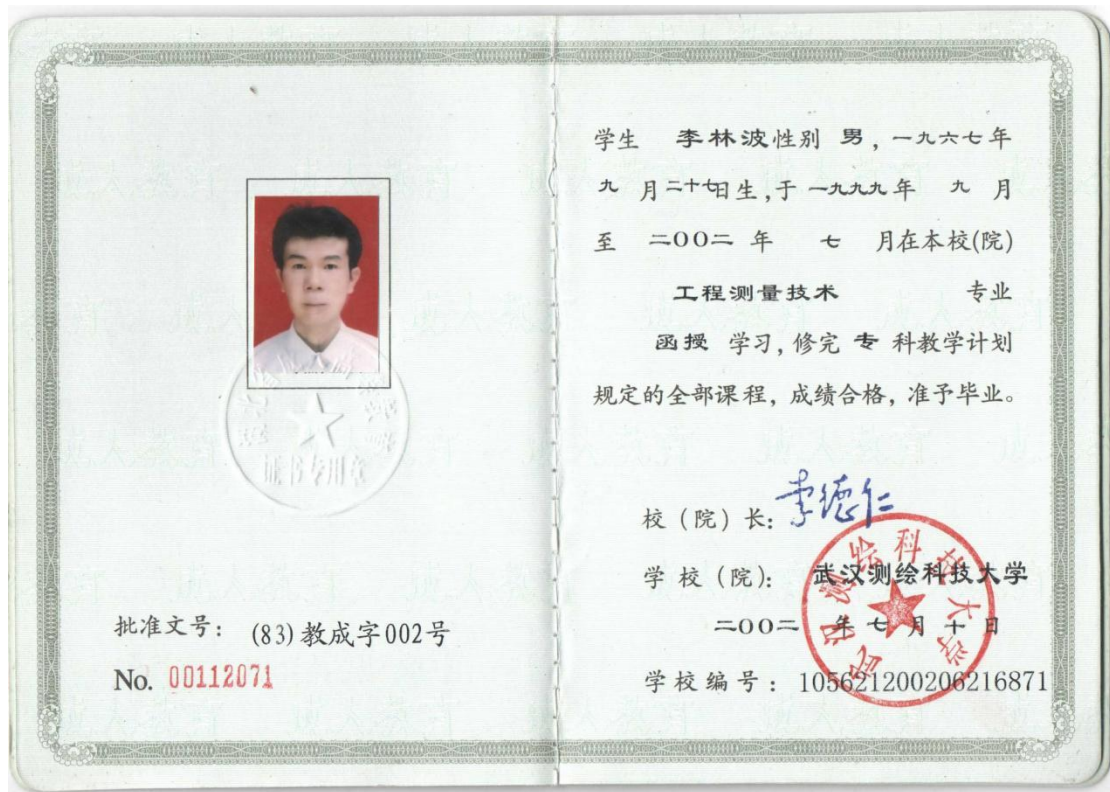 证书专用章
批准文号: (83)教成字002号
No. 00112071
学生 李林波性别 男, 一九六七年
九 月二十七日生,于 一九九九年 九 月
至 二00二 年 七 月在本校(院)
工程测量技术 专业
函授 学习, 修完 专 科教学计划
规定的全部课程, 成绩合格, 准予毕业。
校(院)长: 李德仁
学校(院): 武汉测绘科技大学
二00二 年 七 月 十 日
学校编号: 105621200206216871
武汉测绘科技大学